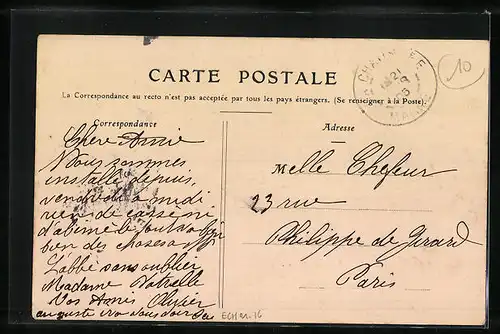 CARTE POSTALE
La Correspondance au recto n'est pas acceptée par tous les pays étrangers. (Se renseigner à la Poste).
10
Correspondance
Adresse
Chère Amie
Nous sommes
installé depuis,
vendredi a midi
rien de cassé ni
d'abimé le
bien des choses a
L'abbé sans oublier
Madame
Vos Amis Olivier
auguste ira vous voir
Melle
23 rue
Philippe de Girard
Paris